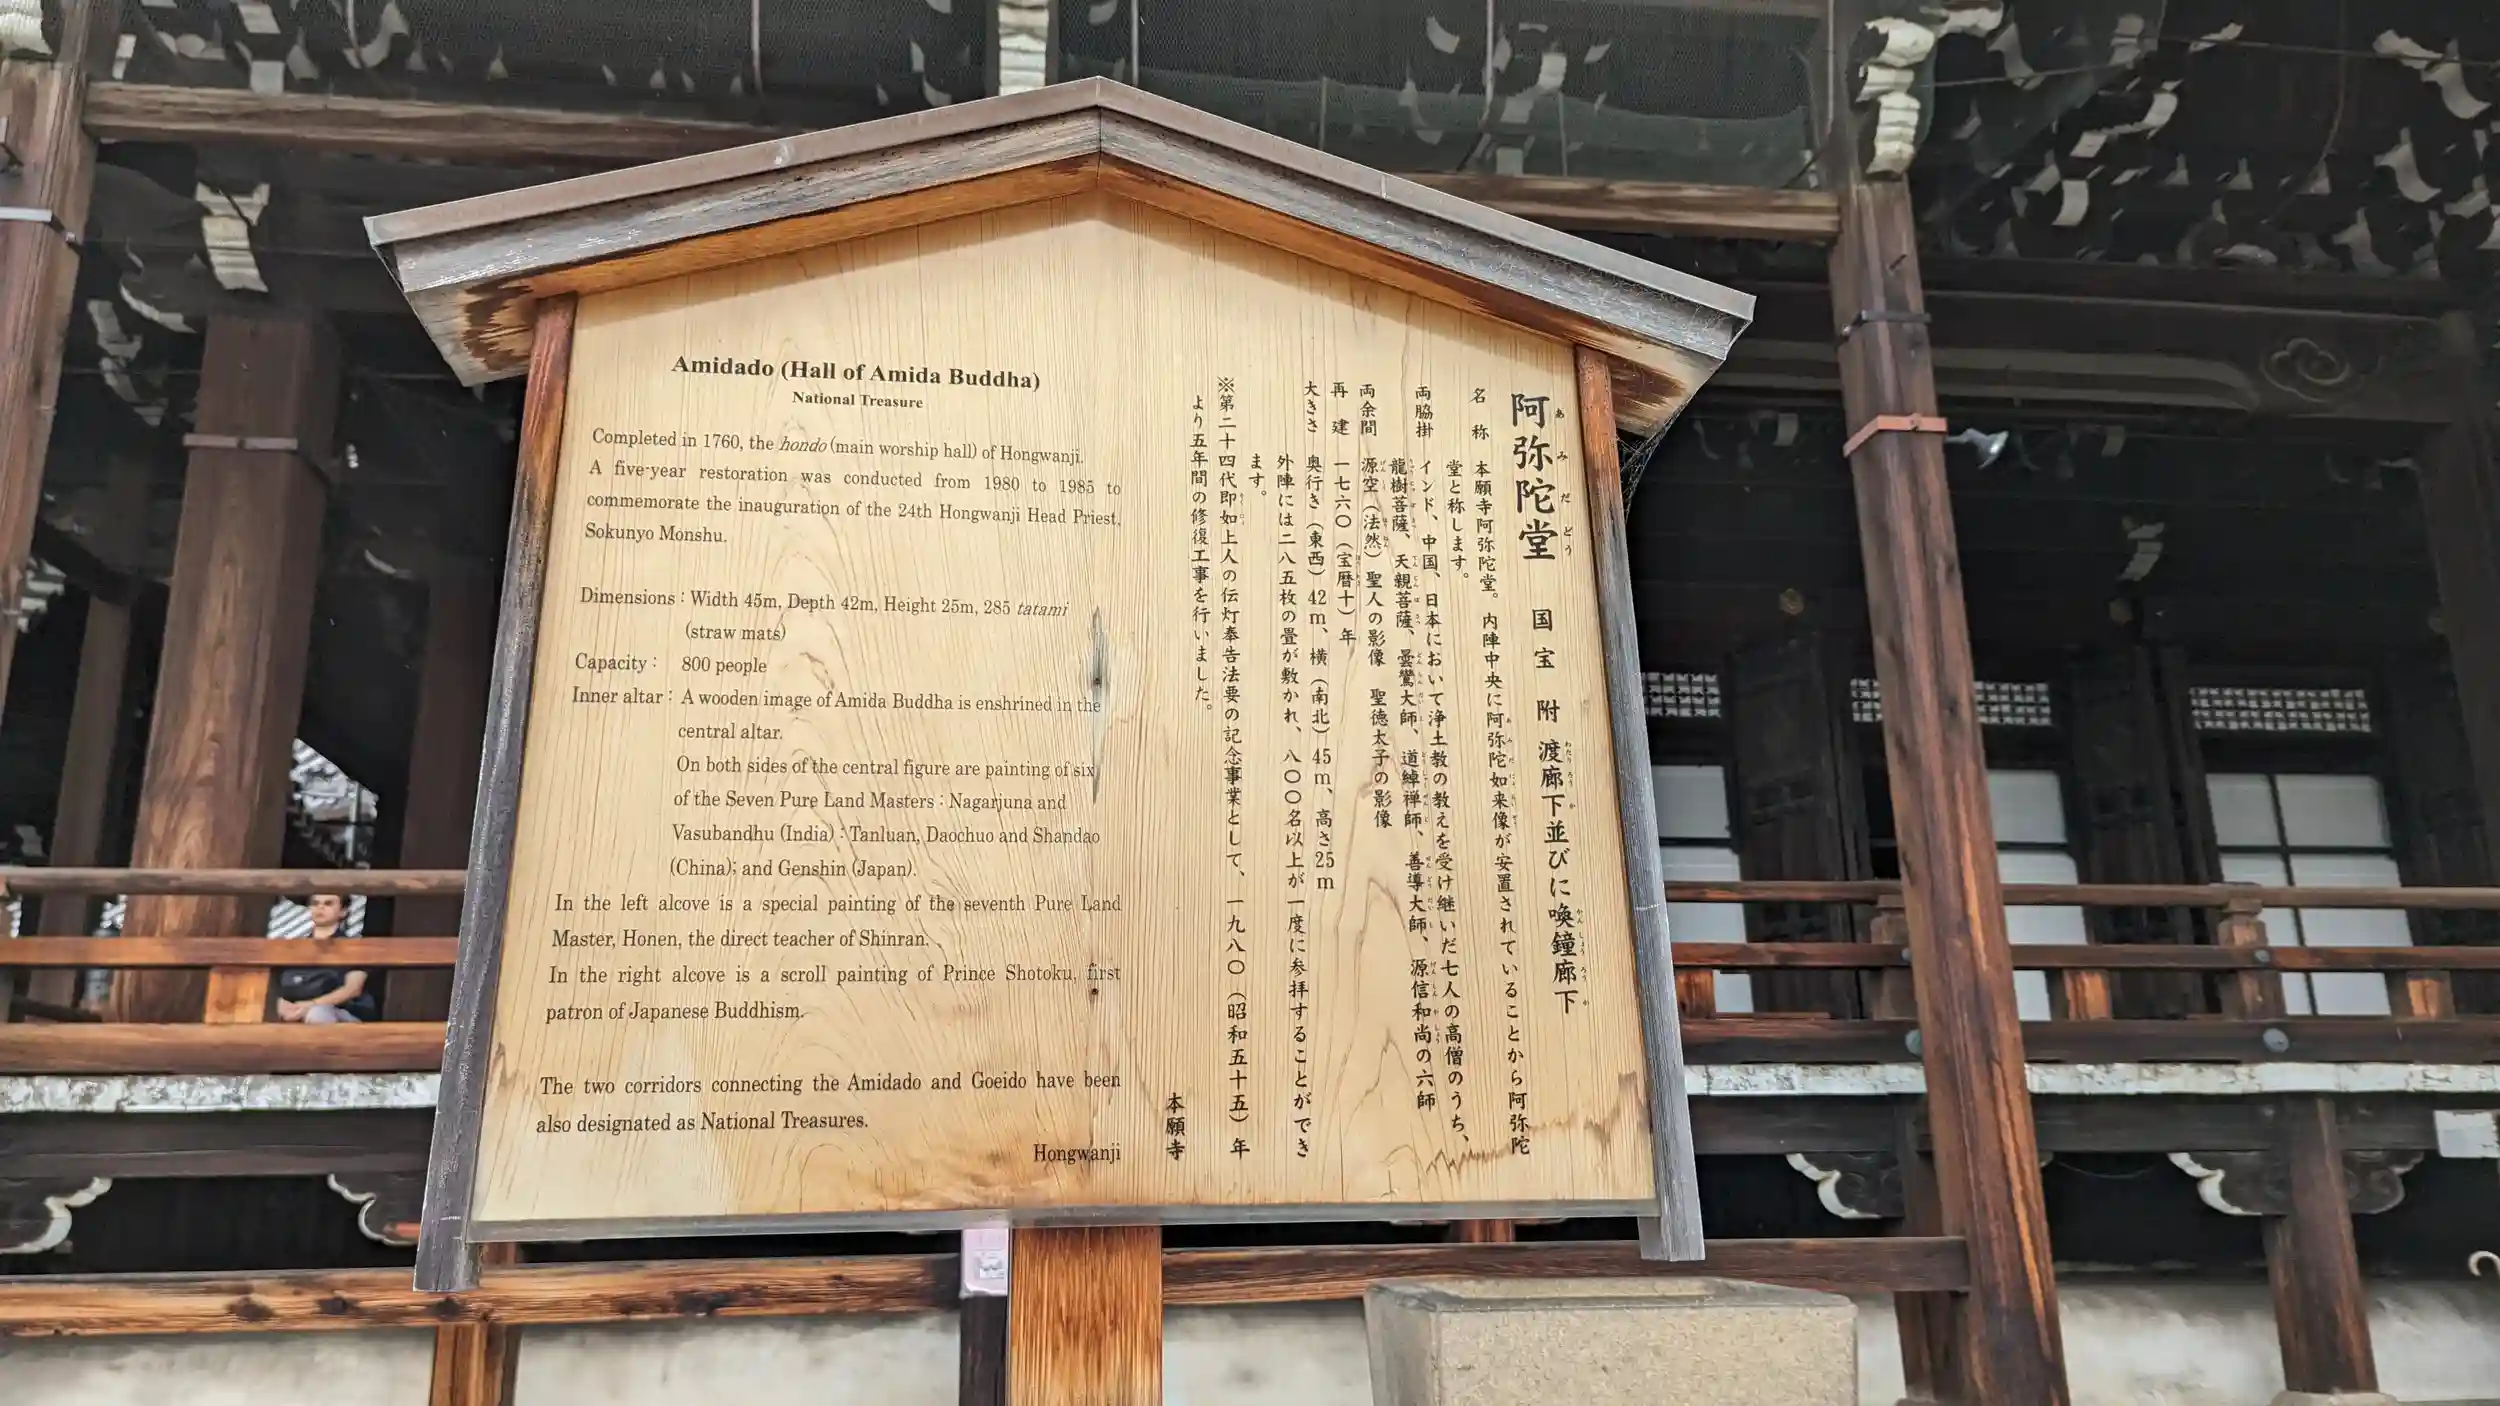 Amidado (Hall of Amida Buddha)
National Treasure
Completed in 1760, the hondo (main worship hall) of Hongwanji.
A five-year restoration was conducted from 1980 to 1985 to
commemorate the inauguration of the 24th Hongwanji Head Priest,
Sokunyo Monshu.
Dimensions : Width 45m, Depth 42m, Height 25m, 285 tatami
(straw mats)
Capacity : 800 people
Inner altar : A wooden image of Amida Buddha is enshrined in the
central altar.
On both sides of the central figure are painting of six
of the Seven Pure Land Masters : Nagarjuna and
Vasubandhu (India) : Tanluan, Daochuo and Shandao
(China); and Genshin (Japan).
In the left alcove is a special painting of the seventh Pure Land
Master, Honen, the direct teacher of Shinran.
In the right alcove is a scroll painting of Prince Shotoku, first
patron of Japanese Buddhism.
The two corridors connecting the Amidado and Goeido have been
also designated as National Treasures.
Hongwanji
阿弥陀堂 国宝 附 渡廊下並びに喚鐘廊下
あみだどう わたりろうか かんしょうろうか
名称 本願寺阿弥陀堂。内陣中央に阿弥陀如来像が安置されていることから阿弥陀
堂と称します。
両脇掛 インド、中国、日本において浄土教の教えを受け継いだ七人の高僧のうち、
龍樹菩薩、天親菩薩、曇鸞大師、道綽禅師、善導大師、源信和尚の六師
両余間 源空(法然)聖人の影像 聖徳太子の影像
再建 一七六〇(宝暦十)年
大きさ 奥行き(東西)42m、横(南北)45m、高さ25m
外陣には二八五枚の畳が敷かれ、八〇〇名以上が一度に参拝することができ
ます。
※第二十四代即如上人の伝灯奉告法要の記念事業として、一九八〇(昭和五十五)年
より五年間の修復工事を行いました。
本願寺